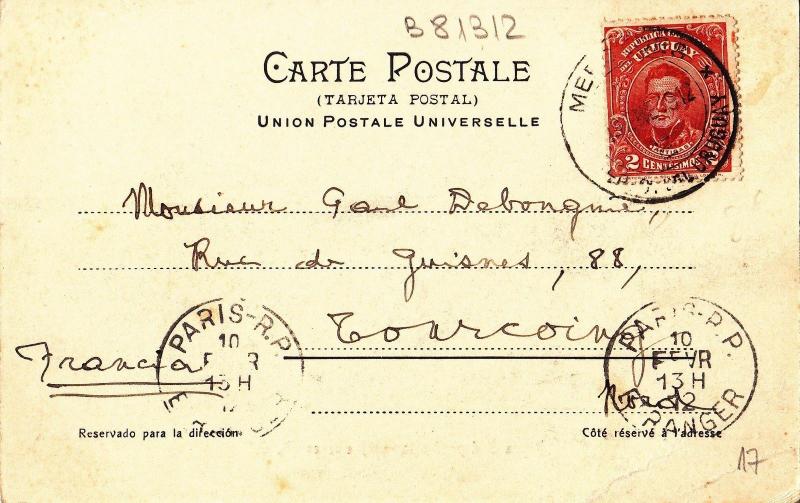 B81312
CARTE POSTALE
(TARJETA POSTAL)
UNION POSTALE UNIVERSELLE
URUGUAY
ARTIGAS
2 CENTESIMOS 2
URUGUAY
Monsieur Paul Debongnie,
Rue de Guisnes, 88,
Tourcoing
Francia
Nord
PARIS-R.P.
10
13H
PARIS-R.P.
10
FEVR
13H
12
ETRANGER
Reservado para la dirección
Côté réservé à l'adresse
17